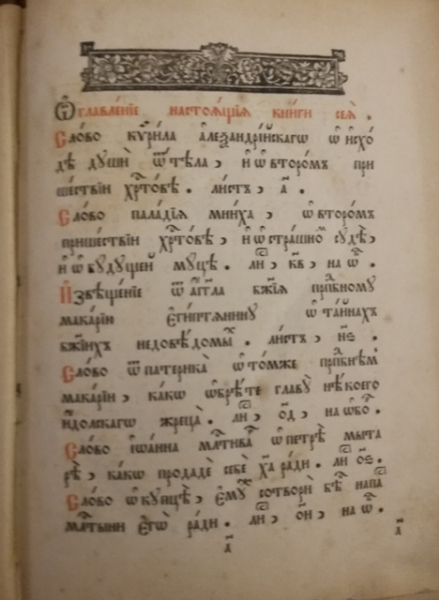 Ѡ҆главле́нїе настоѧ́щїѧ кни́ги сеѧ̀ .
Сло́во кѷрі́лла а҆леѯандрі́йскагѡ ѡ҆ и҆схо́
дѣ дꙋшѝ ѿ тѣ́ла , и҆ ѡ҆ второ́мъ при
ше́ствїи хрⷭ҇то́вѣ . ли́стъ , а҃ .
Сло́во палла́дїѧ мни́ха , ѡ҆ второ́мъ
прише́ствїи хрⷭ҇то́вѣ , и҆ ѡ҆ стра́шнѡⷨ сꙋдѣ̀ ,
и҆ ѡ҆ бꙋ́дꙋщей мꙋ́цѣ . лиⷭ҇ , к҃в , на ѡ҆бⷪ҇
И҆звѣще́нїе ѿ а҆́гг҃ла бж҃їѧ прпⷣбномꙋ
мака́рїю є҆гѵ́птѧнинꙋ ѡ҆ та́йнахъ
бж҃їихъ недовѣ́домыⷯ . ли́стъ , н҃ѕ .
Сло́во ѿ патерика̀ ѡ҆ то́мже прпⷣбнѣмъ
мака́рїи , ка́кѡ ѡ҆брѣ́те главꙋ̀ нѣ́коего
и҆́дольскагѡ жреца̀ . лиⷭ҇ , о҃д , на ѡ҆бⷪ҇
Сло́во і҆ѡа́нна млⷭ҇тиваⷢ ѡ҆ петрѣ̀ мыта
рѣ̀ , ка́кѡ продадѐ себѐ хрⷭ҇та̀ ра́ди . лиⷭ҇ о҃ѕ .
Сло́во ѡ҆ кꙋпцѣ̀ , є҆мꙋ́же сотворѝ бѣ́съ напа́
млⷭ҇тыни є҆гѡ̀ ра́ди . лиⷭ҇ , о҃и , на ѡ҆бⷪ҇
а҃ а҃